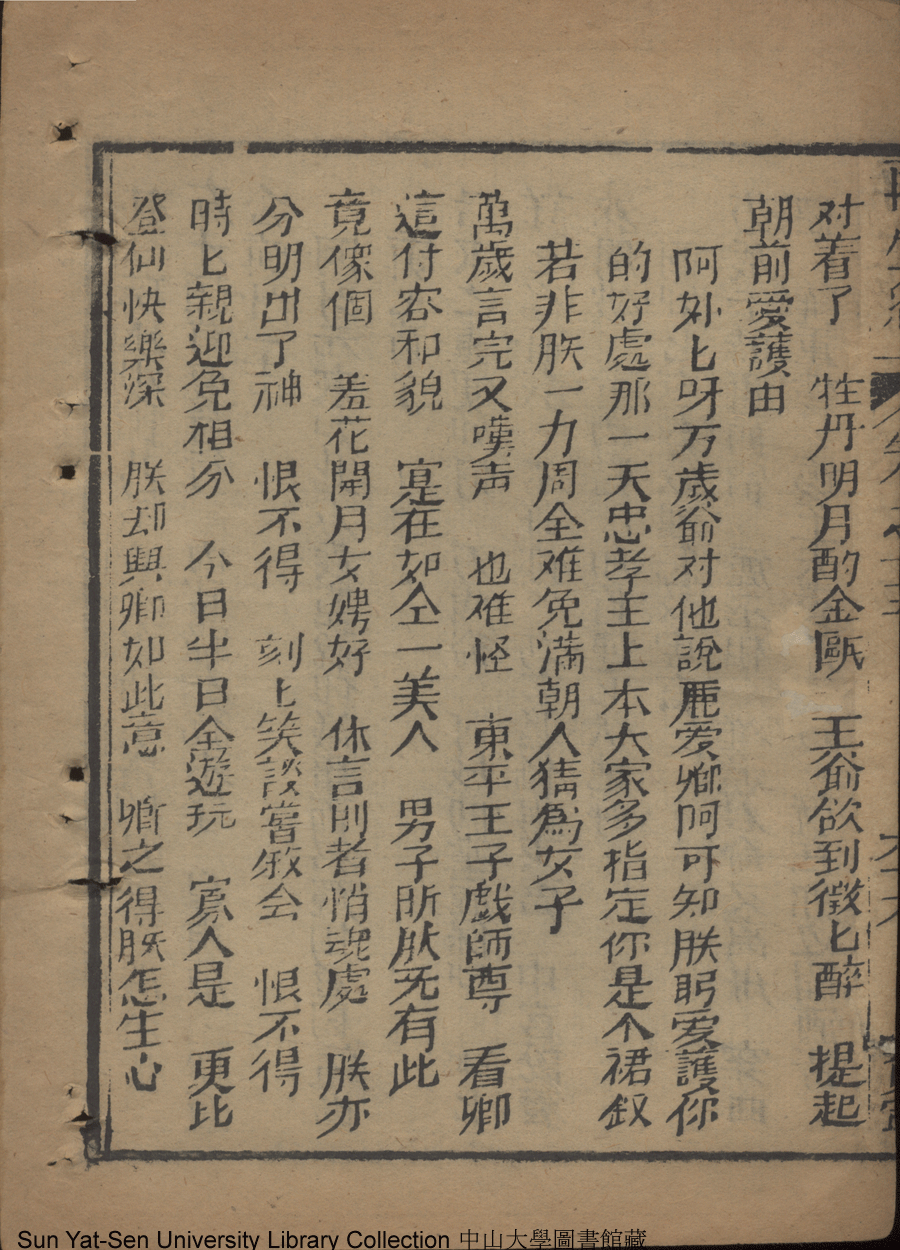 对着了 牡丹明月酌金甌 王爺欲到微匕醉 提起
朝前愛護由
阿妙匕呀万歲爺对他說酈爱卿阿可知朕躬爱護你
的好處那一天忠孝王上本大家多指定你是个裙釵
若非朕一力周全难免满朝人猜為女子
萬歲言完又嘆声 也难怪 東平王子戲師尊 看卿
這付容和貌 寔在如仝一美人 男子所肽旡有此
竟像個 羞花閉月女娉好 休言則者悄魂處 朕亦
分明出了神 恨不得 刻匕笑談嘗敘会 恨不得
時匕親迎免相分 今日半日仝遊玩 寡人是 更比
登仙快樂深 朕却與卿如此意 卿之得朕怎生心
Sun Yat-Sen University Library Collection 中山大學圖書館藏